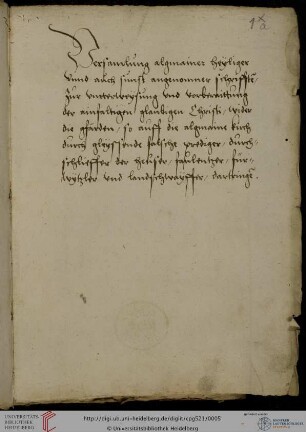 Versamlung algmainer heyliger
vnnd auch sunst angenomner schrifften
zur vnterweysung vnd verwarnung
der ainfaltigen glaubigen Christi, wider
die gfarden, so auff die algmaine kirch
durch gleyssende falsche prediger, durch-
schlieffer der heuser, faulentzer, für-
wytzler vnd landschwayffer, dartringē.
http://digi.ub.uni-heidelberg.de/diglit/cpg521/0005
© Universitätsbibliothek Heidelberg
UNIVERSITÄTS-
BIBLIOTHEK
HEIDELBERG